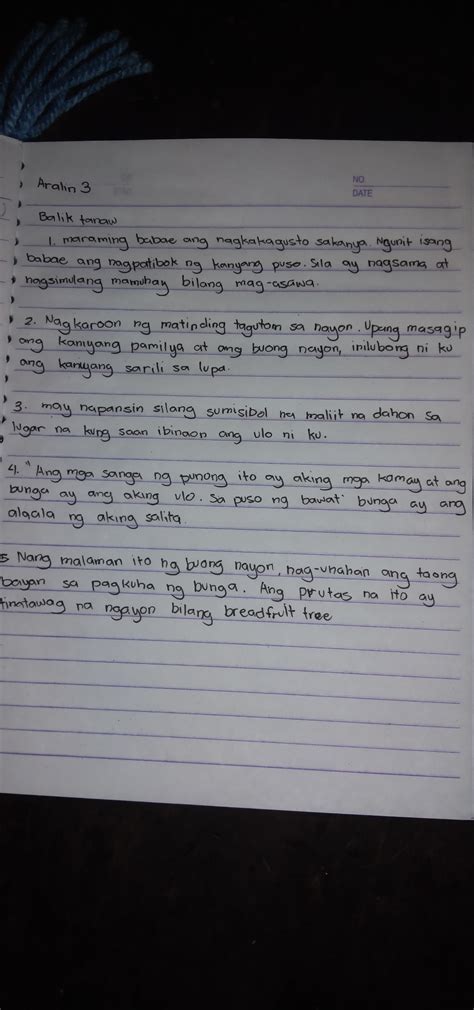 NO.
DATE
Aralin 3
Balik tanaw
1. maraming babae ang nagkakagusto sakanya. Ngunit isang
babae ang nagpatibok ng kanyang puso. Sila ay nagsama at
nagsimulang mamuhay bilang mag-asawa.
2. Nagkaroon ng matinding tagutom sa nayon. Upang masagip
ang kaniyang pamilya at ang buong nayon, inilubong ni ku
ang kaniyang sarili sa lupa.
3. may napansin silang sumisibol na maliit na dahon sa
lugar na kung saan ibinaon ang ulo ni ku.
4. "Ang mga sanga ng punong ito ay aking mga kamay at ang
bunga ay ang aking ulo. Sa puso ng bawat bunga ay ang
alaala ng aking salita.
5 Nang malaman ito ng buong nayon, nag-unahan ang taong
bayan sa pagkuha ng bunga. Ang prutas na ito ay
tinatawag na ngayon bilang breadfruit tree